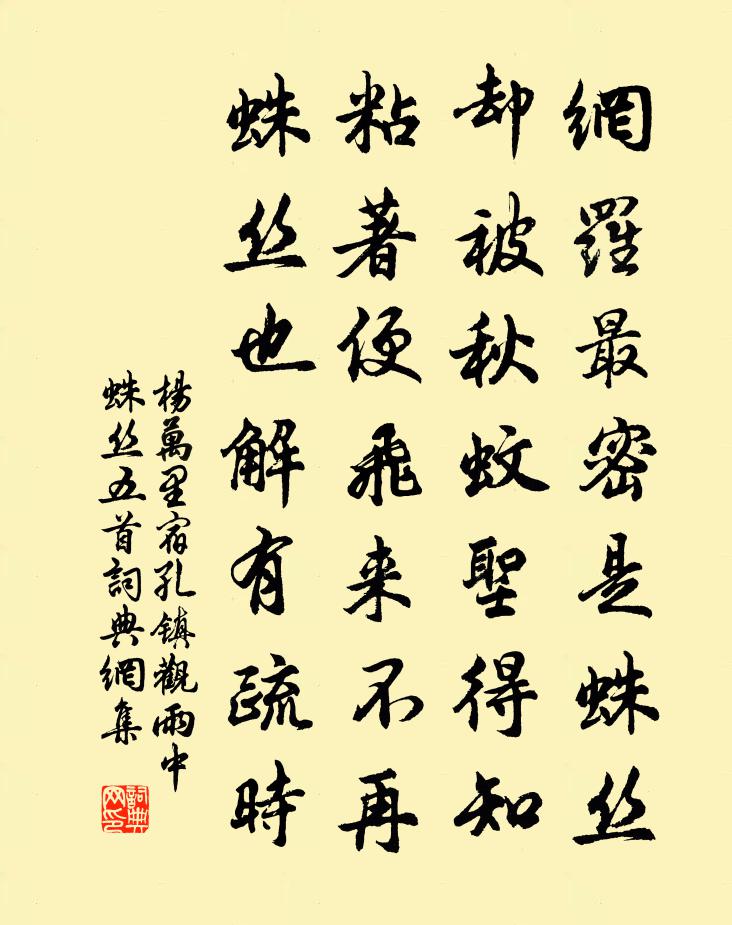 網羅最密是蛛丝
却被秋蚊聖得知
粘著便飛来不再
蛛丝也解有疏時
楊萬里宿孔镇觀雨中
蛛丝五首詞典網集
詞典
网印